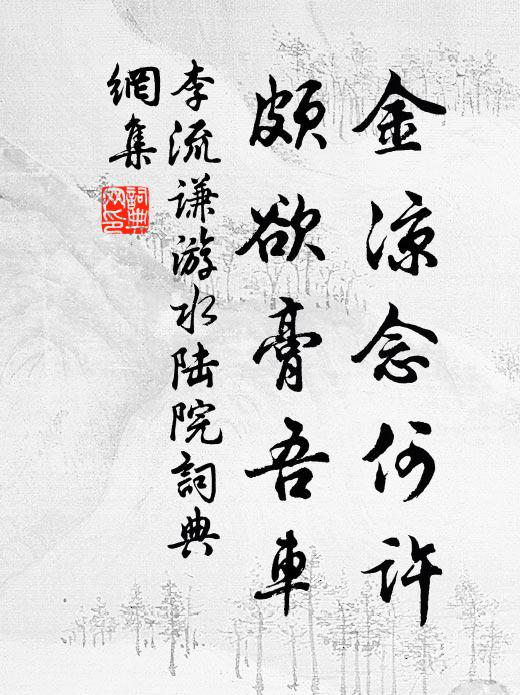 金凉念何许
颇欲膏吾車
李流谦游水陆院詞典
網集
詞典
网印